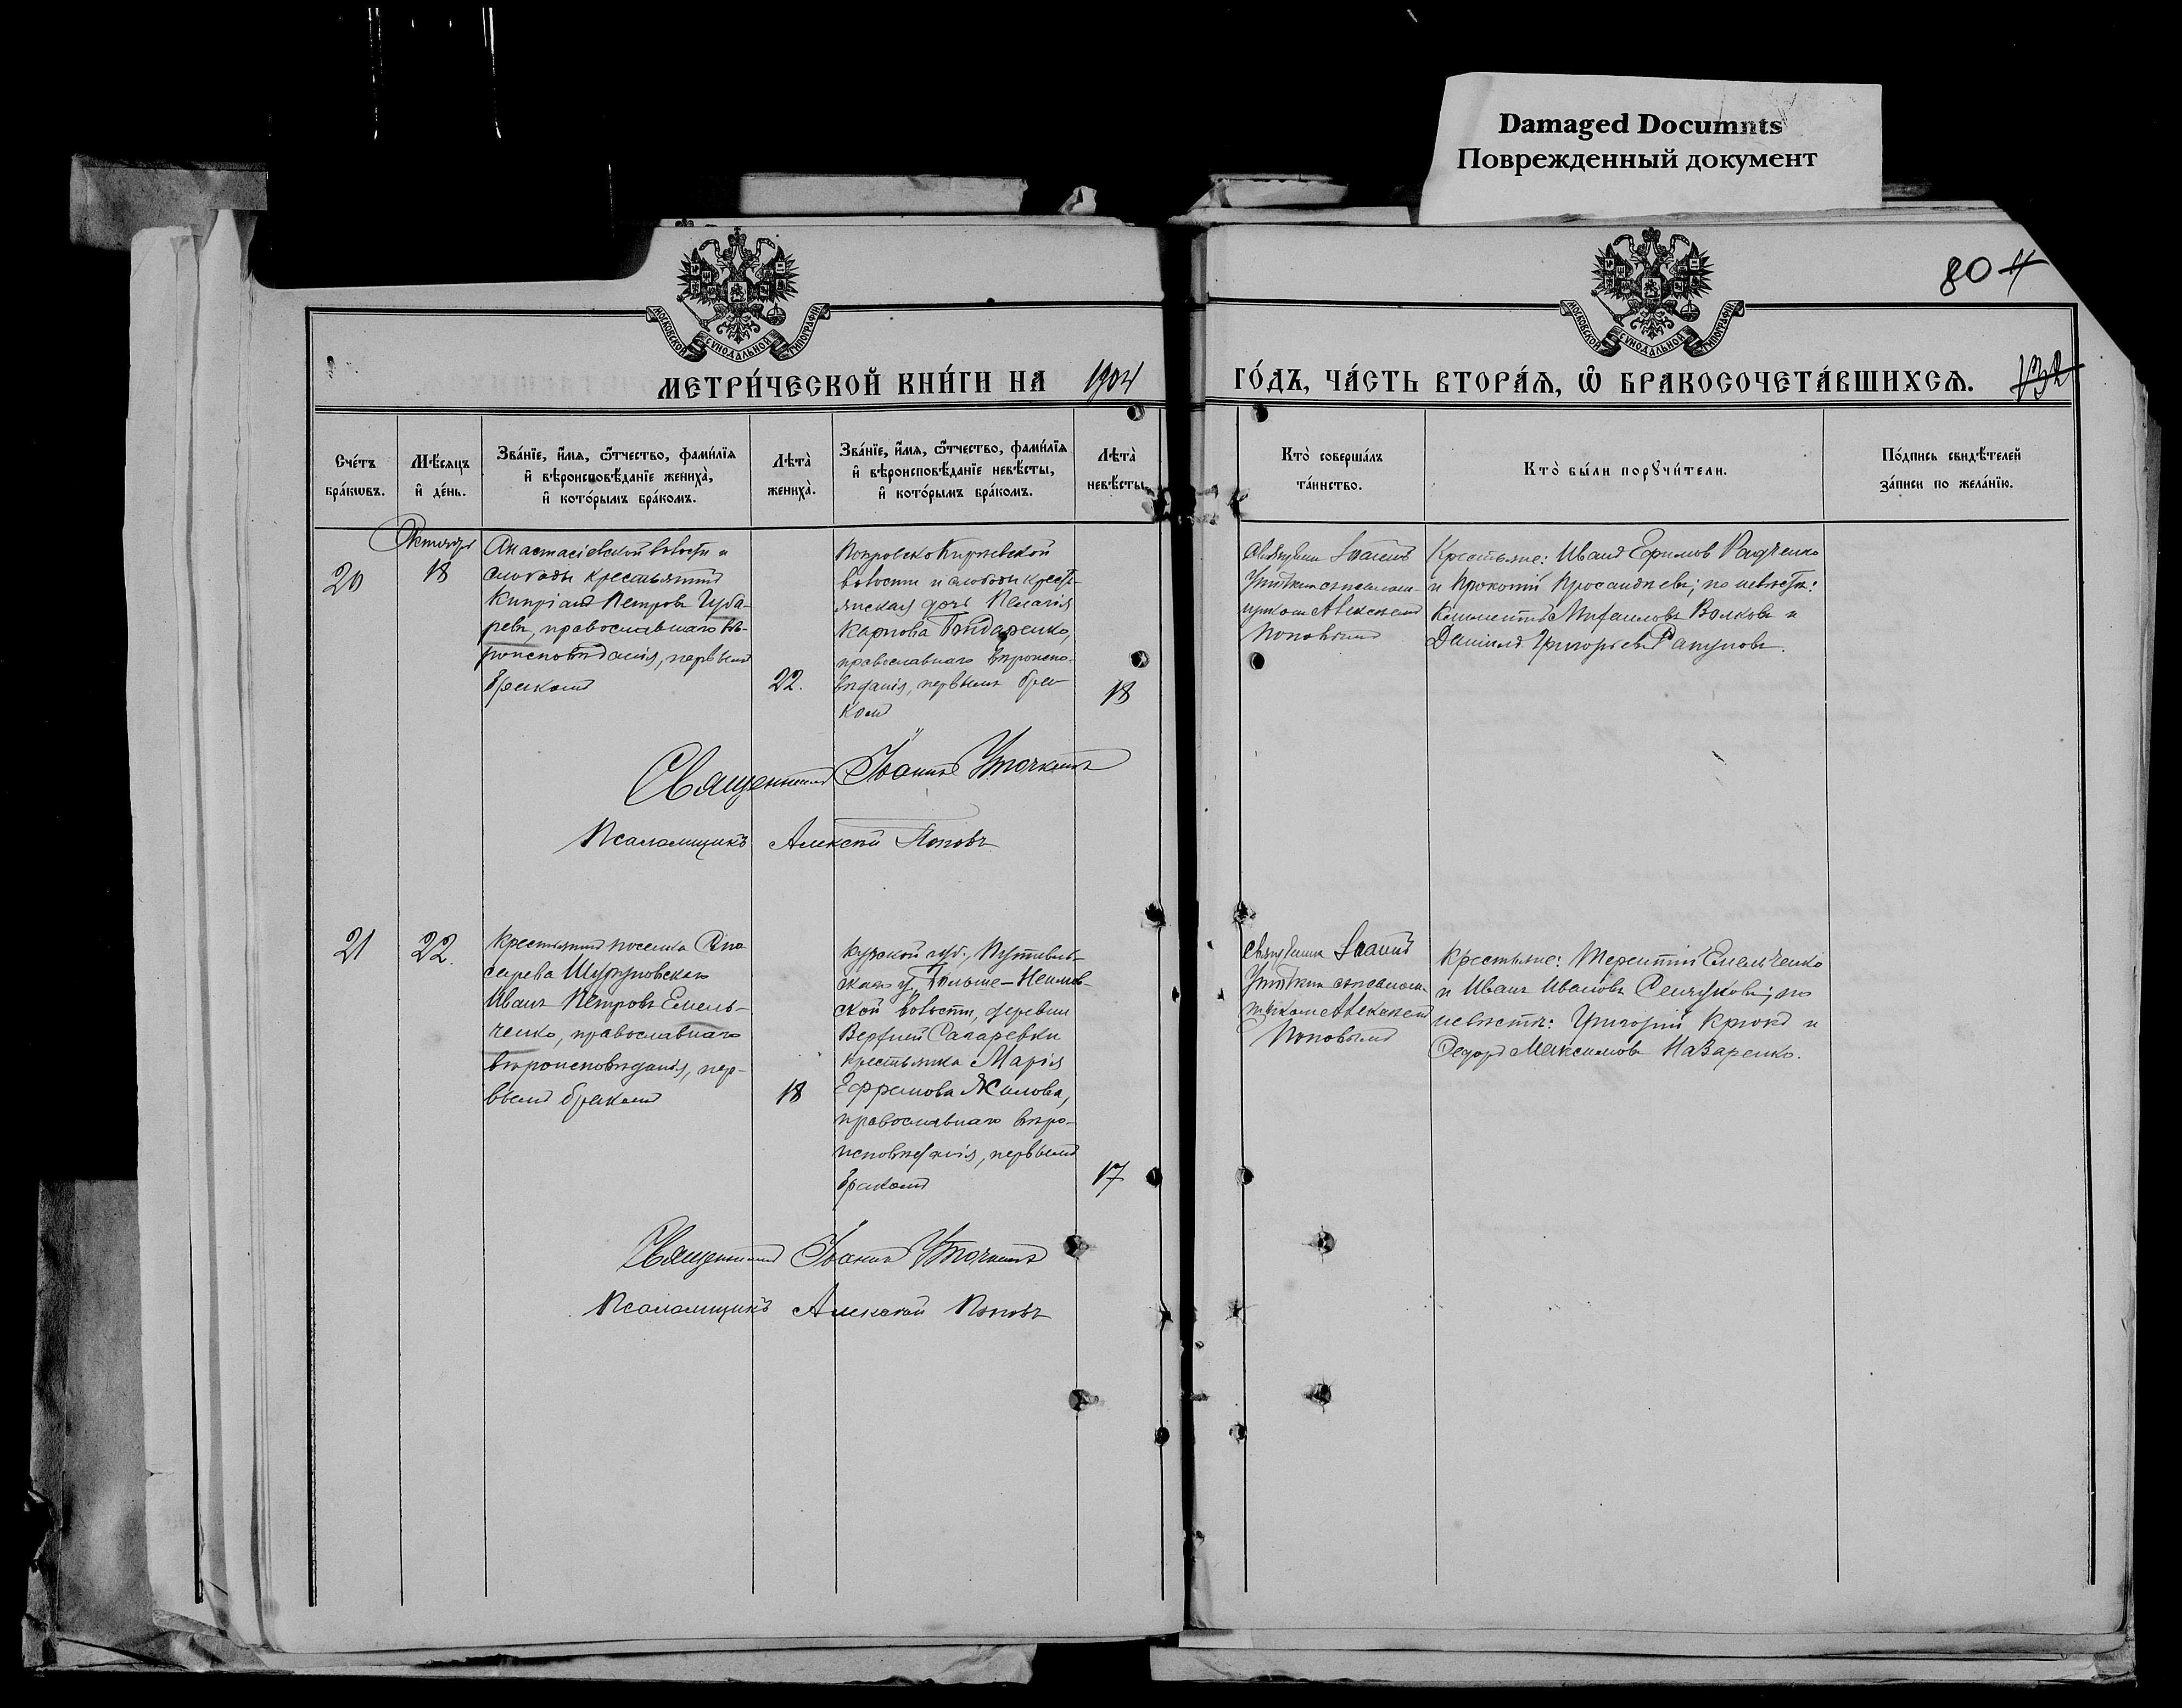 Damaged Documnts
Поврежденный документ
804
МОСКОВСКОЙ СѴНОДАЛЬНОЙ ТИПОГРАФІИ
МОСКОВСКОЙ СѴНОДАЛЬНОЙ ТИПОГРАФІИ
МЕТРИ́ЧЕСКОЙ КНИ́ГИ НА 1904
ГО́ДЪ, ЧА́СТЬ ВТОРА́Ѧ, Ѡ҆ БРАКОСОЧЕТА́ВШИХСѦ. 132
Сче́тъ
бра́кѡвъ.
Мѣ́сѧцъ
и҆ де́нь.
Зва́нїе, и҆́мѧ, ѻ҆́тчество, фами́лїѧ
и҆ вѣроисповѣ́данїе жениха̀,
и҆ кото́рымъ бра́комъ.
Лѣта̀
жениха̀.
Зва́нїе, и҆́мѧ, ѻ҆́тчество, фами́лїѧ
и҆ вѣроисповѣ́данїе невѣ́сты,
и҆ кото́рымъ бра́комъ.
Лѣта̀
невѣ́сты.
Кто̀ соверша́лъ
та́инство.
Кто̀ бы́ли порꙋчи́тели.
По́дпись свидѣ́телей
за́писи по жела́нїю.
20
Октябрь
18
Анастасіевской волости и
слободы крестьянинъ
Кипріанъ Петровъ Губа-
ревъ, православнаго вѣ-
роисповѣданія, первымъ
бракомъ
22.
Покровско Киреевской
волости и слободы кресть-
янская дочь Пелагія
Карпова Бондаренко,
православнаго вѣроиспо-
вѣданія, первымъ бра-
комъ
18
Священникъ Іоаннъ
Уточкинъ съ псалом-
щикомъ Алексѣемъ
Поповымъ
Крестьяне: Иванъ Ефимовъ Радченко
и Прокопій; по невѣстѣ:
Климентъ Михаиловъ Волковъ и
Даніилъ Григорьевъ
Священникъ Іоаннъ Уточкинъ
Псаломщикъ Алексѣй Поповъ
21
22.
Крестьянинъ поселка
Иванъ Петровъ Емель-
ченко, православнаго
вѣроисповѣданія, пер-
вымъ бракомъ
18
Курской губ., Путивль-
скаго у., Больше-Неплюев-
ской волости, деревни
Верхней Сагаревки
крестьянка Марія
Ефремова Жилова,
православнаго вѣро-
исповѣданія, первымъ
бракомъ
17
Священникъ Іоаннъ
Уточкинъ съ псалом-
щикомъ Алексѣемъ
Поповымъ
Крестьяне: Терентій Емельченко
и Иванъ Ивановъ; по
невѣстѣ: Григорій Крюкъ и
Ѳедоръ Максимовъ Назаренко.
Священникъ Іоаннъ Уточкинъ
Псаломщикъ Алексѣй Поповъ